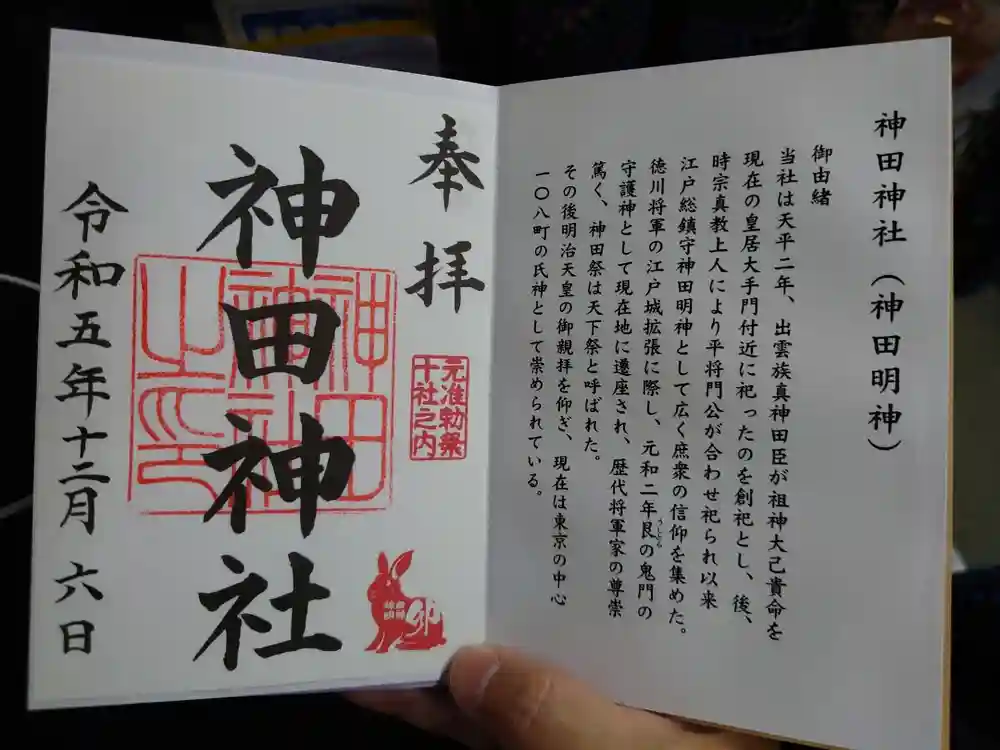 神田神社(神田明神)
御由緒
当社は天平二年、出雲族真神田臣が祖神大己貴命を
現在の皇居大手門付近に祀ったのを創祀とし、後、
時宗真教上人により平将門公が合わせ祀られ以来
江戸総鎮守神田明神として広く庶衆の信仰を集めた。
徳川将軍の江戸城拡張に際し、元和二年艮の鬼門の
うしとら
守護神として現在地に遷座され、歴代将軍家の尊崇
篤く、神田祭は天下祭と呼ばれた。
その後明治天皇の御親拝を仰ぎ、現在は東京の中心
一〇八町の氏神として崇められている。
奉拝
元准勅祭
十社之内
卯
神田神社
神田
神社
之印
令和五年十二月六日